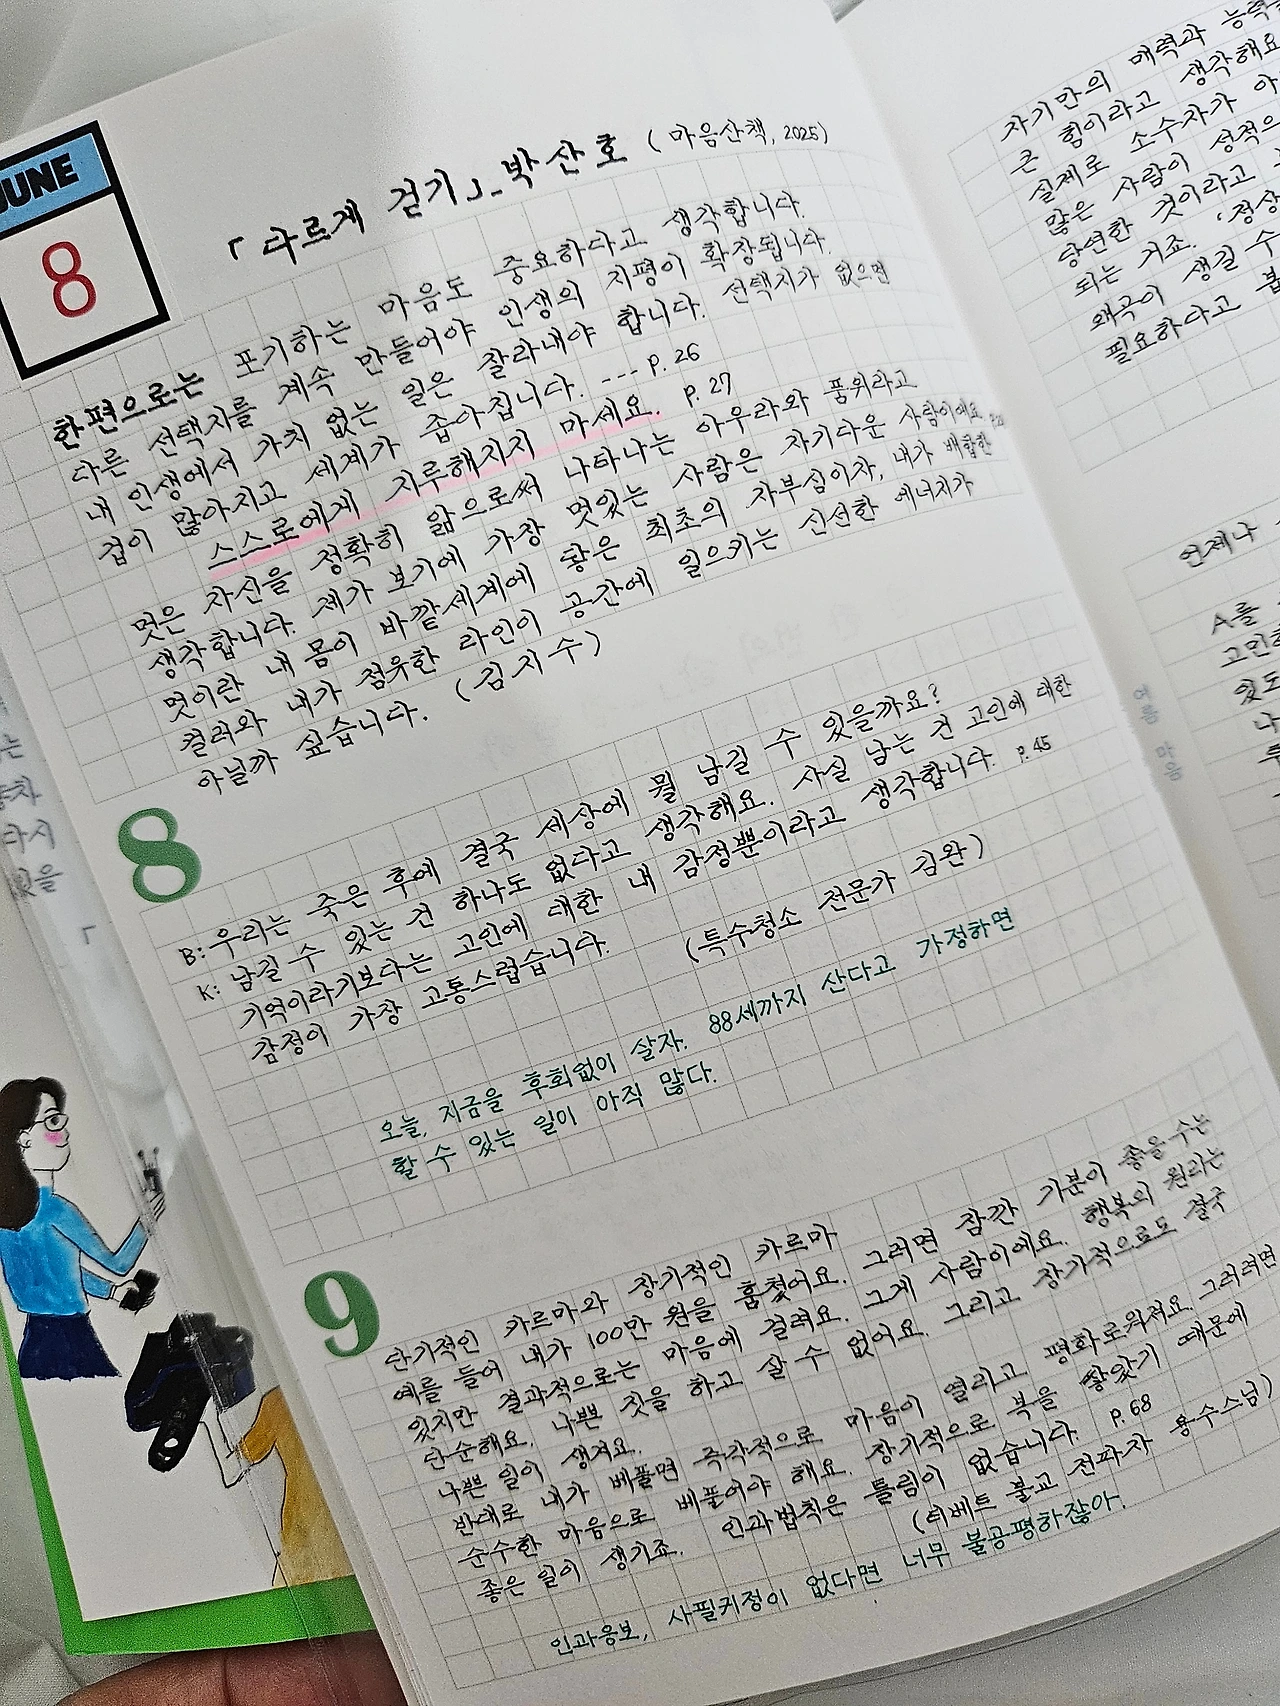 JUNE
8
「다르게 걷기」- 박산호 (마음산책, 2025)
한편으로는 포기하는 마음도 중요하다고 생각합니다.
다른 선택지를 계속 만들어야 인생의 지평이 확장됩니다.
내 인생에서 가치 없는 일은 잘라내야 합니다. 선택지가 없으면
겁이 많아지고 세계가 좁아집니다. --- p. 26
스스로에게 지루해지지 마세요. p. 27
멋은 자신을 정확히 앎으로써 나타나는 아우라와 품위라고
생각합니다. 제가 보기에 가장 멋있는 사람은 자기다운 사람이에요.
멋이란 내 몸이 바깥세계에 쌓은 최초의 자부심이자, 내가 배합한
컬러와 내가 점유한 라인이 공간에 일으키는 신선한 에너지가
아닐까 싶습니다. (김지수)
8
B: 우리는 죽은 후에 결국 세상에 뭘 남길 수 있을까요?
K: 남길 수 있는 건 하나도 없다고 생각해요. 사실 남는 건 고인에 대한
기억이라기보다는 고인에 대한 내 감정뿐이라고 생각합니다. p. 45
감정이 가장 고통스럽습니다. (특수청소 전문가 김완)
오늘, 지금을 후회없이 살자. 88세까지 산다고 가정하면
할 수 있는 일이 아직 많다.
9
단기적인 카르마와 장기적인 카르마
예를 들어 내가 100만 원을 훔쳤어요. 그러면 잠깐 기분이 좋을 수는
있지만 결과적으로는 마음에 걸려요. 그게 사람이에요. 행복의 원리는
단순해요. 나쁜 짓을 하고 살 수 없어요. 그리고 장기적으로도 결국
나쁜 일이 생겨요.
반대로 내가 베풀면 즉각적으로 마음이 열리고 평화로워져요. 그러려면
순수한 마음으로 베풀어야 해요. 장기적으로 복을 쌓았기 때문에
좋은 일이 생기죠. 인과법칙은 틀림이 없습니다. p. 68
(티베트 불교 전파자 용수스님)
인과응보, 사필귀정이 없다면 너무 불공평하잖아.
자기만의 매력과 능력을
큰 힘이라고 생각해요
실제로 소수자가 아
많은 사람이 성적으
당연한 것이라고
되는 거죠. '정상
왜곡이 생길 수
필요하다고
언제나
A를
고민
있도
나
여름 마음